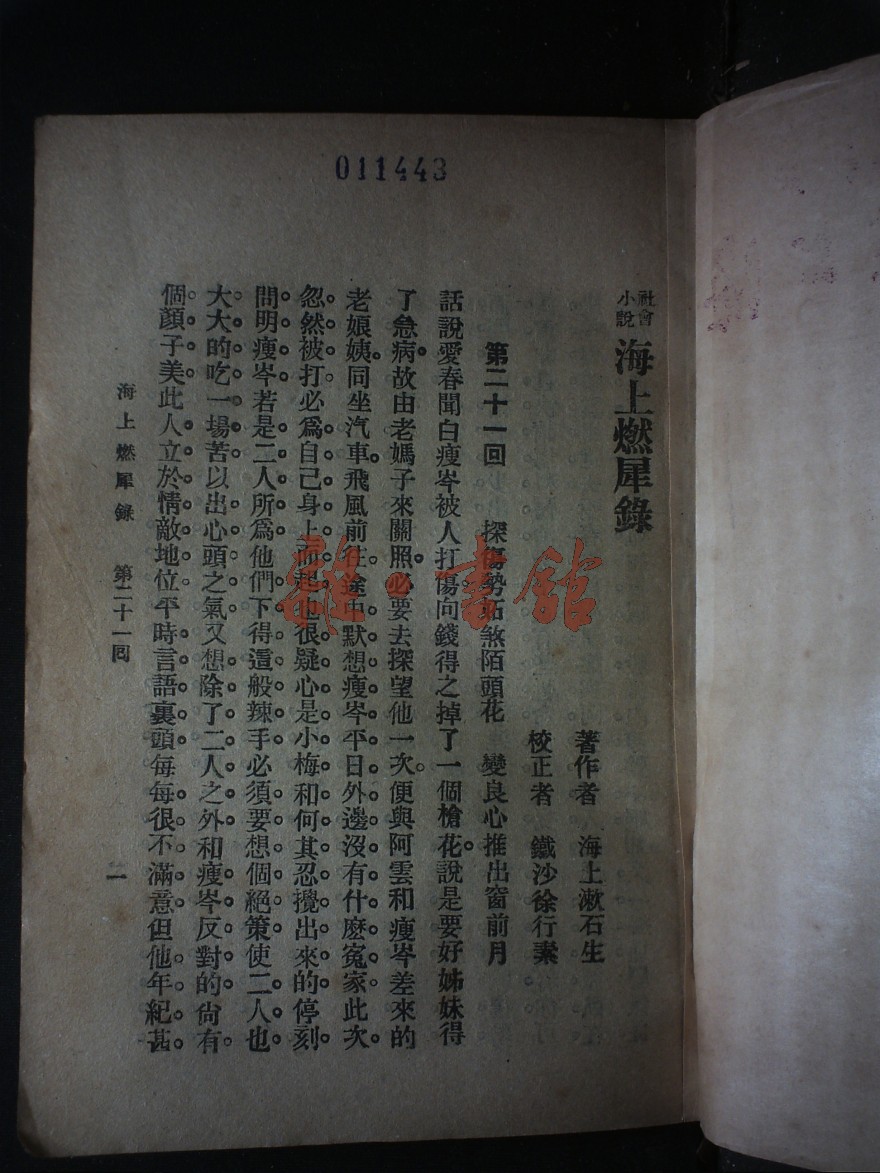 011443
社會小說 海上燃犀錄
著作者 海上漱石生
校正者 鐵沙徐行素
第二十一回 探傷勢妬煞陌頭花 變良心推出窗前月
話說愛春聞白瘦岑被人打傷向錢得之掉了一個槍花。說是要好姊妹得
了急病。故由老媽子來關照。必要去探望他一次。便與阿雲和瘦岑差來的
老娘姨。同坐汽車。飛風前往。途中默想瘦岑平日。外邊沒有什麽寃家。此次
忽然被打。必爲自己身上而起。也很疑心是小梅和何其忍攪出來的。停刻
問明瘦岑。若是二人所爲。他們下得這般辣手。必須要想個絕策。使二人也
大大的吃一場苦。以出心頭之氣。又想除了二人之外。和瘦岑反對的。尙有
個顏子美。此人立於情敵地位。平時言語裏頭。每每很不滿意。但他年紀甚
海上燃犀錄 第二十一囘
一
雜·書館